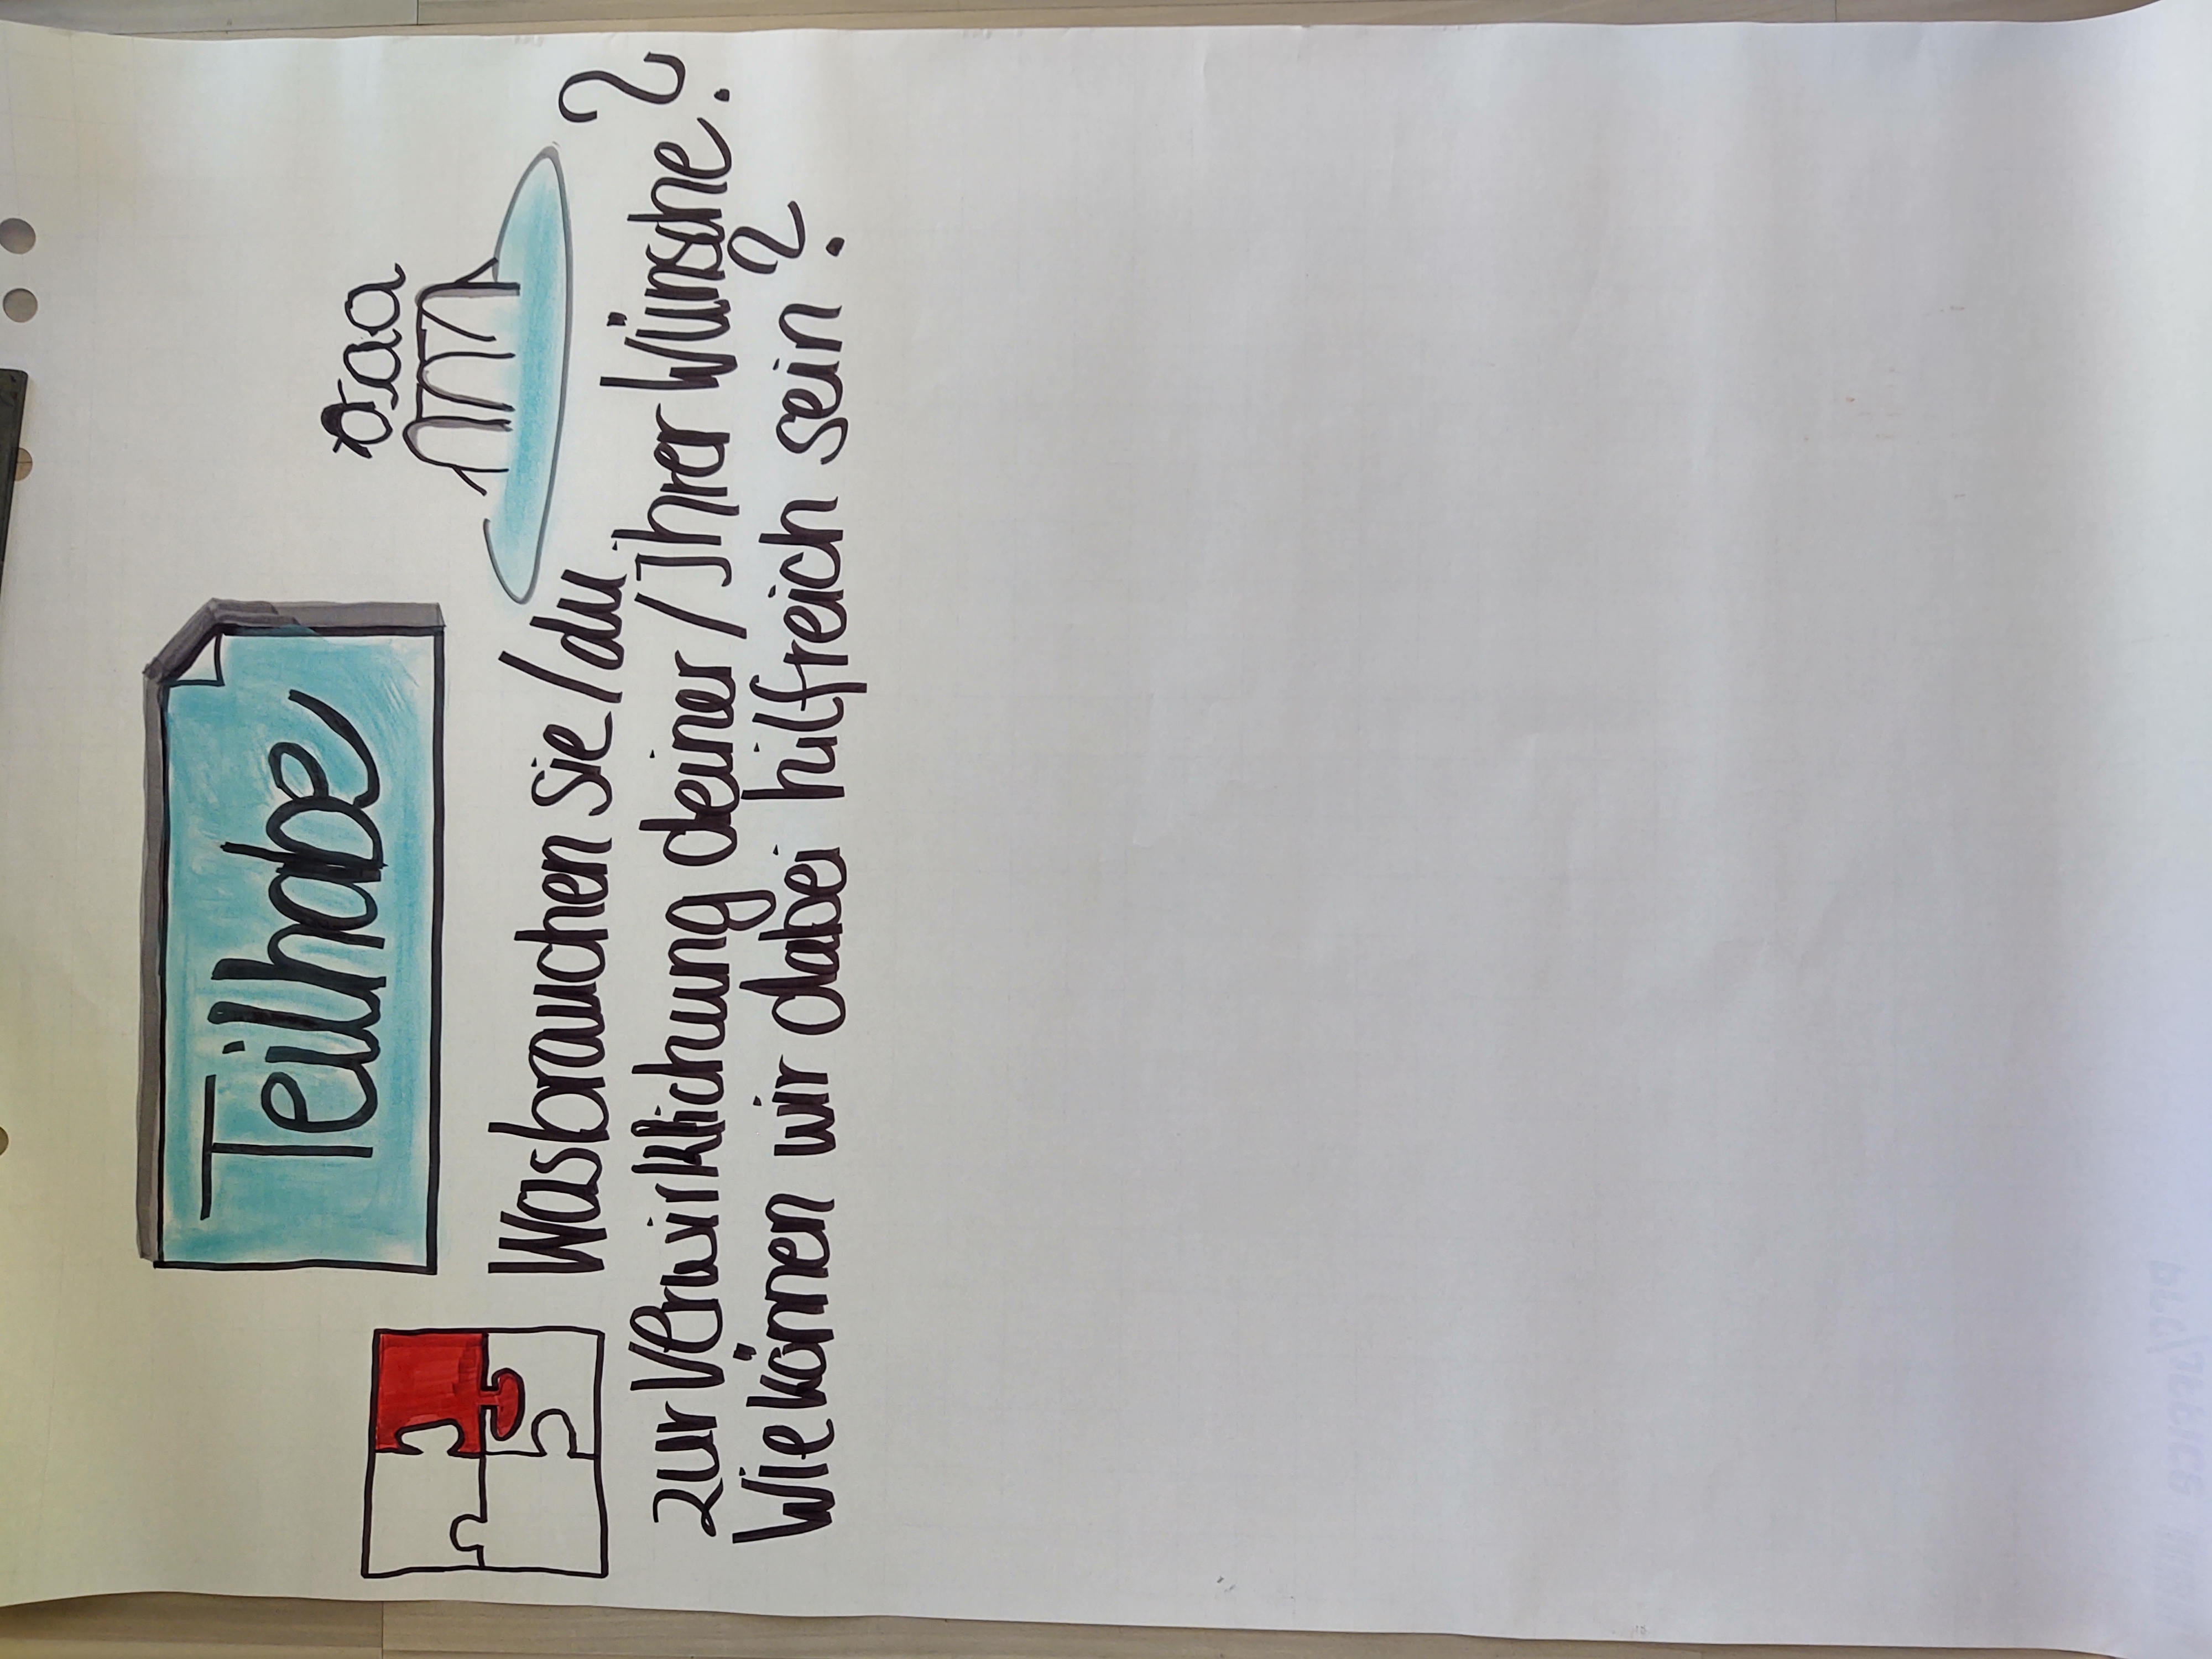 Teilhabe
Was brauchen sie/du
zur Verwirklichung deiner/Ihrer Wünsche?
Wie können wir dabei hilfreich sein?